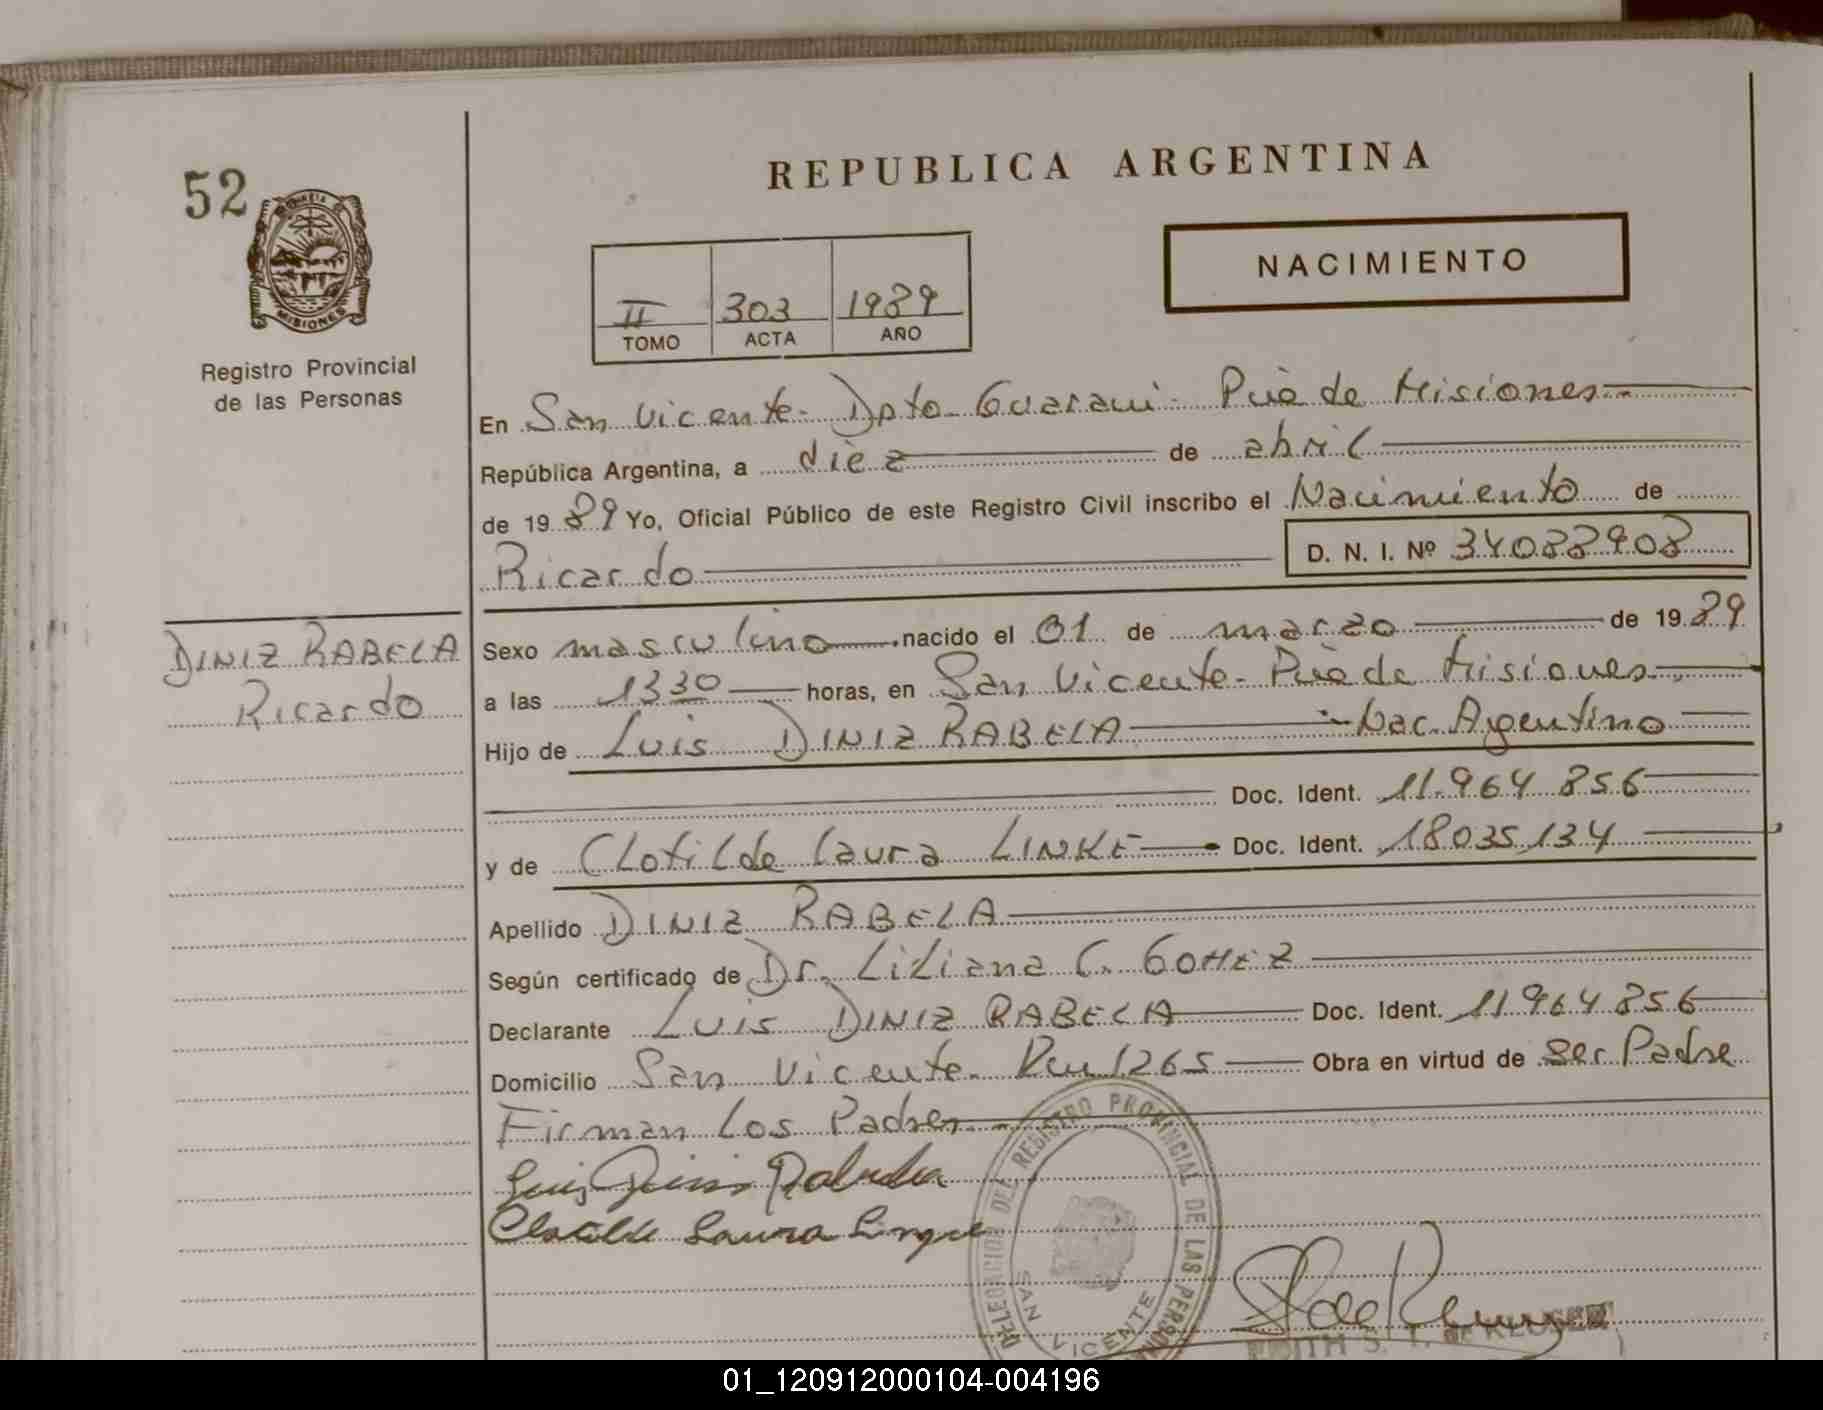 REPUBLICA ARGENTINA
52
MISIONES
Registro Provincial
de las Personas
NACIMIENTO
II 303 1989
TOMO ACTA AÑO
En San Vicente- Dpto- Guarani- Pcia de Misiones
República Argentina, a diez de abril
de 19 89 Yo, Oficial Público de este Registro Civil inscribo el Nacimiento de
Ricardo D. N. I. Nº 34088908
DINIZ RABELA
Ricardo
Sexo masculino nacido el 01 de marzo de 19 89
a las 1330 horas, en San Vicente- Pcia de Misiones
Hijo de Luis DINIZ RABELA - Nac. Argentino
Doc. Ident. 11.964.856
y de Clotilde Laura LINKE Doc. Ident. 18.035.134
Apellido DINIZ RABELA
Según certificado de Dr. Liliana C. GOMEZ
Declarante Luis DINIZ RABELA Doc. Ident. 11.964.856
Domicilio San Vicente- Km 1265 Obra en virtud de ser Padre
Firman Los Padres
Luis Diniz
Clotilde Laura
DELEGACION DEL REGISTRO PROVINCIAL DE LAS PERSONAS
SAN VICENTE
S. T. de KLUSER
01_120912000104-004196